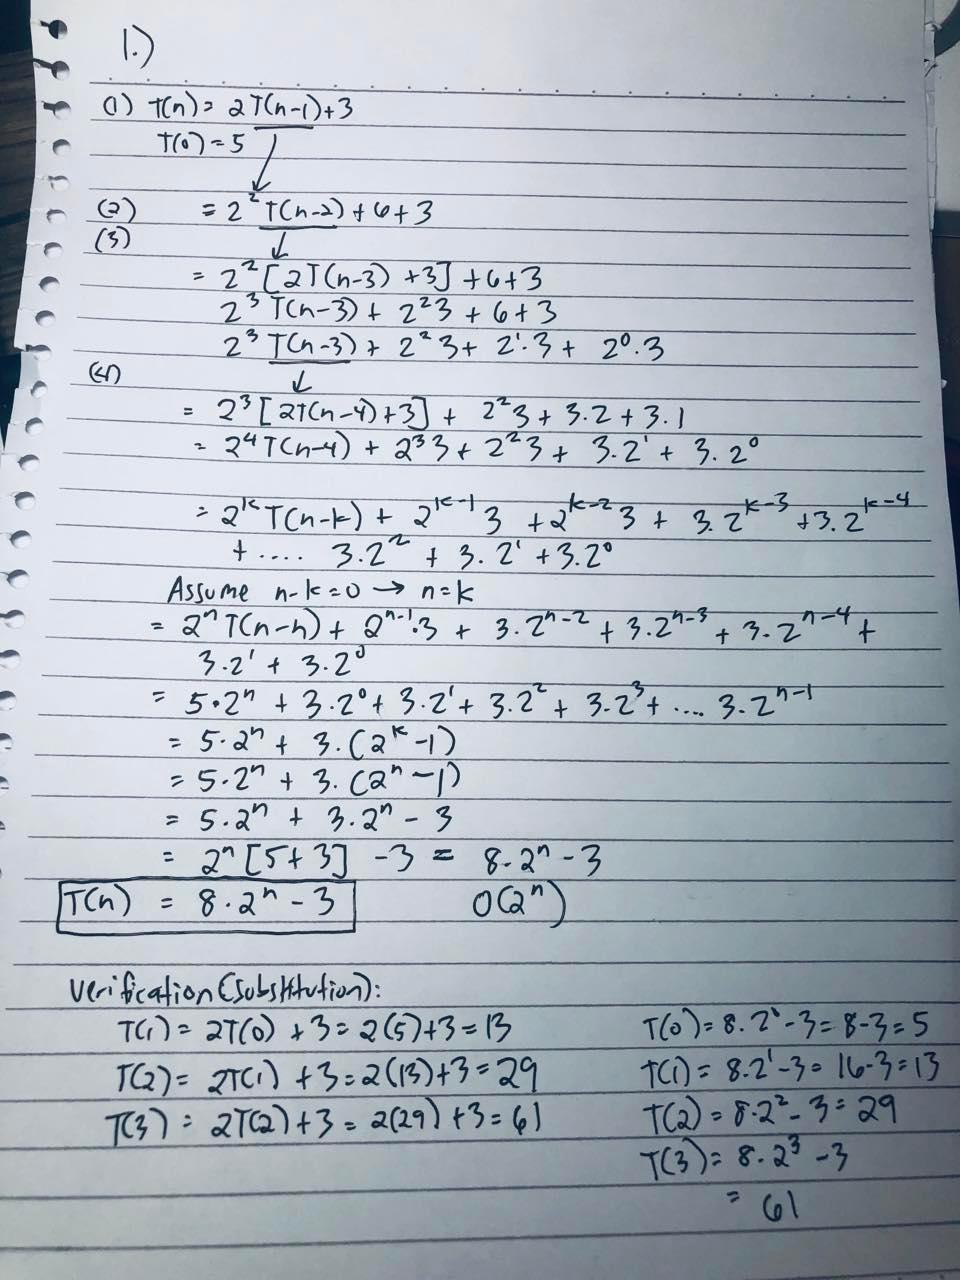 1.)
(1) T(n) = 2T(n-1)+3
T(0) = 5
(2) = 2² T(n-2) + 6 + 3
(3)
= 2² [2T(n-3) +3] + 6 + 3
2³ T(n-3) + 2²3 + 6 + 3
2³ T(n-3) + 2²3 + 2¹·3 + 2⁰·3
(4)
= 2³ [2T(n-4)+3] + 2²3 + 3·2 + 3·1
= 2⁴ T(n-4) + 2³3 + 2²3 + 3·2¹ + 3·2⁰
= 2^k T(n-k) + 2^{k-1} 3 + 2^{k-2} 3 + 3·2^{k-3} + 3·2^{k-4}
+ .... 3·2² + 3·2¹ + 3·2⁰
Assume n-k=0 → n=k
= 2ⁿ T(n-n) + 2^{n-1}·3 + 3·2^{n-2} + 3·2^{n-3} + 3·2^{n-4} +
3·2¹ + 3·2⁰
= 5·2ⁿ + 3·2⁰ + 3·2¹ + 3·2² + 3·2³ + .... 3·2^{n-1}
= 5·2ⁿ + 3·(2^k -1)
= 5·2ⁿ + 3·(2ⁿ -1)
= 5·2ⁿ + 3·2ⁿ - 3
= 2ⁿ [5+3] -3 = 8·2ⁿ - 3
T(n) = 8·2ⁿ - 3 O(2ⁿ)
Verification (Substitution):
T(1) = 2T(0) + 3 = 2(5)+3 = 13 T(0) = 8·2⁰ - 3 = 8-3 = 5
T(2) = 2T(1) + 3 = 2(13)+3 = 29 T(1) = 8·2¹ - 3 = 16-3 = 13
T(3) = 2T(2) + 3 = 2(29) + 3 = 61 T(2) = 8·2² - 3 = 29
T(3) = 8·2³ - 3
= 61